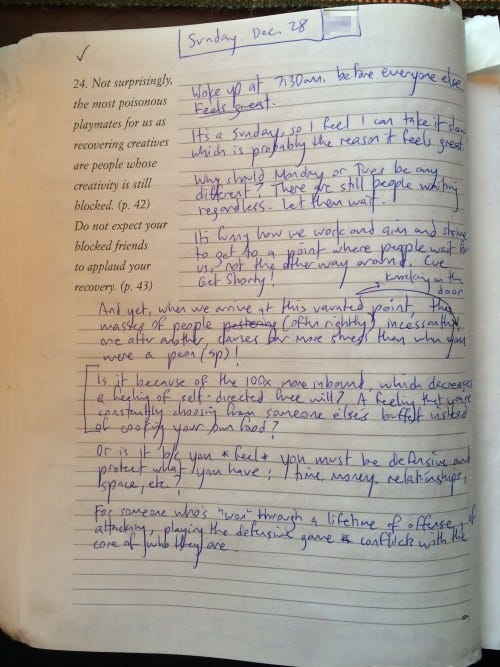 Sunday, Dec. 28
24. Not surprisingly,
the most poisonous
playmates for us as
recovering creatives
are people whose
creativity is still
blocked. (p. 42)
Do not expect your
blocked friends
to applaud your
recovery. (p. 43)
Woke up at 7:30am. before everyone else.
Feels great.
It's a Sunday, so I feel I can take it slow,
which is probably the reason it feels great.
Why should Monday or Tues be any
different? There are still people waiting
regardless. Let them wait.
It's funny how we work and aim and strive
to get to a point where people wait for
us, not the other way around. Cue
Get Shorty!
And yet, when we arrive at this vaunted point, the
masses of people pestering (often rightly) incessantly,
knocking on the
door
one after another, causes far more stress than when you
were a peon (sp)!
Is it because of the 100x more inbound, which decreases
a feeling of self-directed free will? A feeling that you're
constantly choosing from someone else's buffet instead
of cooking your own food?
Or is it b/c you *feel* you must be defensive and
protect what you have: time, money, relationships,
space, etc.?
For someone who's "won" through a lifetime of offense, of
attacking, playing the defensive game is conflicts with the
core of who they are.